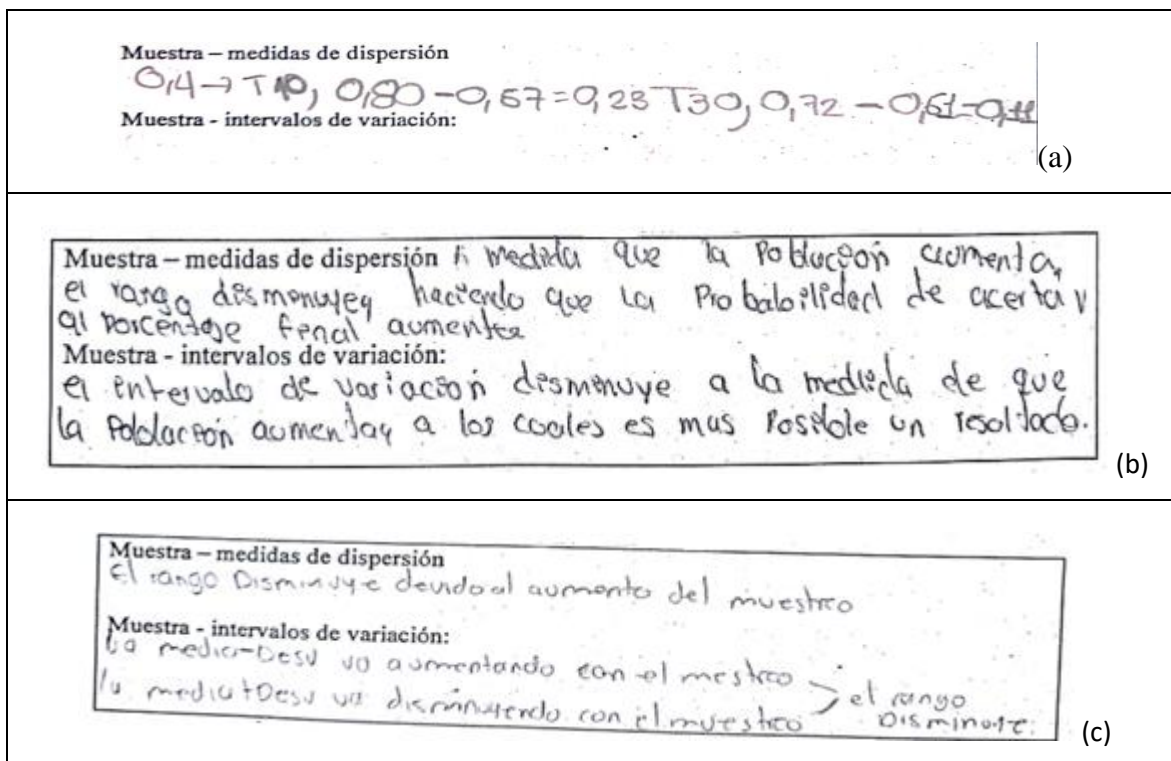 Muestra – medidas de dispersión
0,4 → T10, 0,80 - 0,57 = 0,23 T30, 0,72 - 0,61 = 0,11
Muestra - intervalos de variación:
(a)
Muestra – medidas de dispersión A medida que la Poblucion aumenta,
el rango dismenuyey haciendo que la Probabilidad de acertar
al Porcentaje fenal aumente
Muestra - intervalos de variación:
el entervalo de variación disminuye a la medida de que
la Poblacion aumentay a los cuales es mas Posible un resoltado.
(b)
Muestra – medidas de dispersión
El rango Disminuye devido al aumento del muestreo
Muestra - intervalos de variación:
La media-Desv va aumentando con el mestreo
la media+Desv va disminuyendo con el muestreo
el rango
Disminuye.
(c)